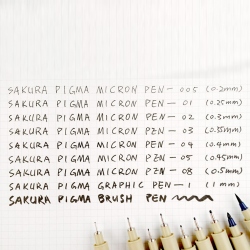 SAKURA PIGMA MICRON PEN - 005 (0.2mm)
SAKURA PIGMA MICRON PEN - 01 (0.25mm)
SAKURA PIGMA MICRON PEN - 02 (0.3mm)
SAKURA PIGMA MICRON PEN - 03 (0.35mm)
SAKURA PIGMA MICRON PEN - 04 (0.4mm)
SAKURA PIGMA MICRON PEN - 05 (0.45mm)
SAKURA PIGMA MICRON PEN - 08 (0.5mm)
SAKURA PIGMA GRAPHIC PEN - 1 (1mm)
SAKURA PIGMA BRUSH PEN